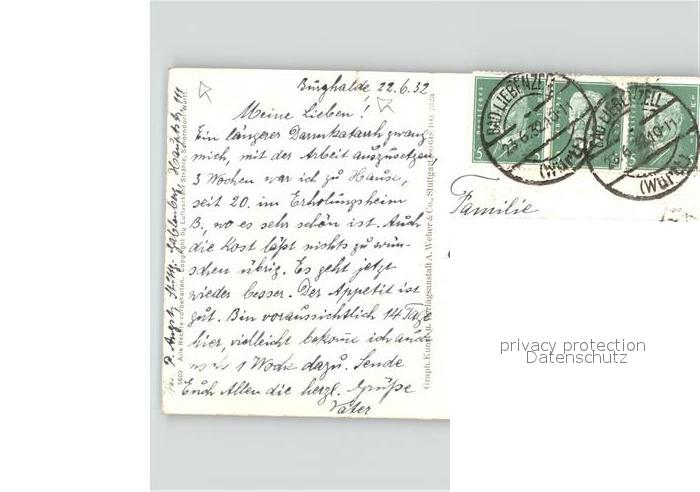 Burghalde 22.6.32
Meine Lieben!
Ein längerer Darmkatarrh zwang
mich, mit der Arbeit auszusetzen,
3 Wochen war ich zu Hause,
seit 20. im Erholungsheim
B., wo es sehr schön ist. Auch
die Kost läßt nichts zu wün-
schen übrig. Es geht jetzt
wieder besser. Der Appetit ist
gut. Bin voraussichtlich 14 Tage
hier, vielleicht bekome ich auch
noch 1 Woche dazu. Sende
Euch Allen die herzl. Grüße
Vater
Stuttg. Gablenberg, Hauptstr.
5609 Alle Rechte vorbehalten. Copyright by Luftverkehr Strähle, Schorndorf Württ.
Graph. Kunst- u. Verlagsanstalt A. Weber & Co., Stuttgart
BAD LIEBENZELL
(Württ)
BAD LIEBENZELL
(Württ)
5
Familie
privacy protection
Datenschutz